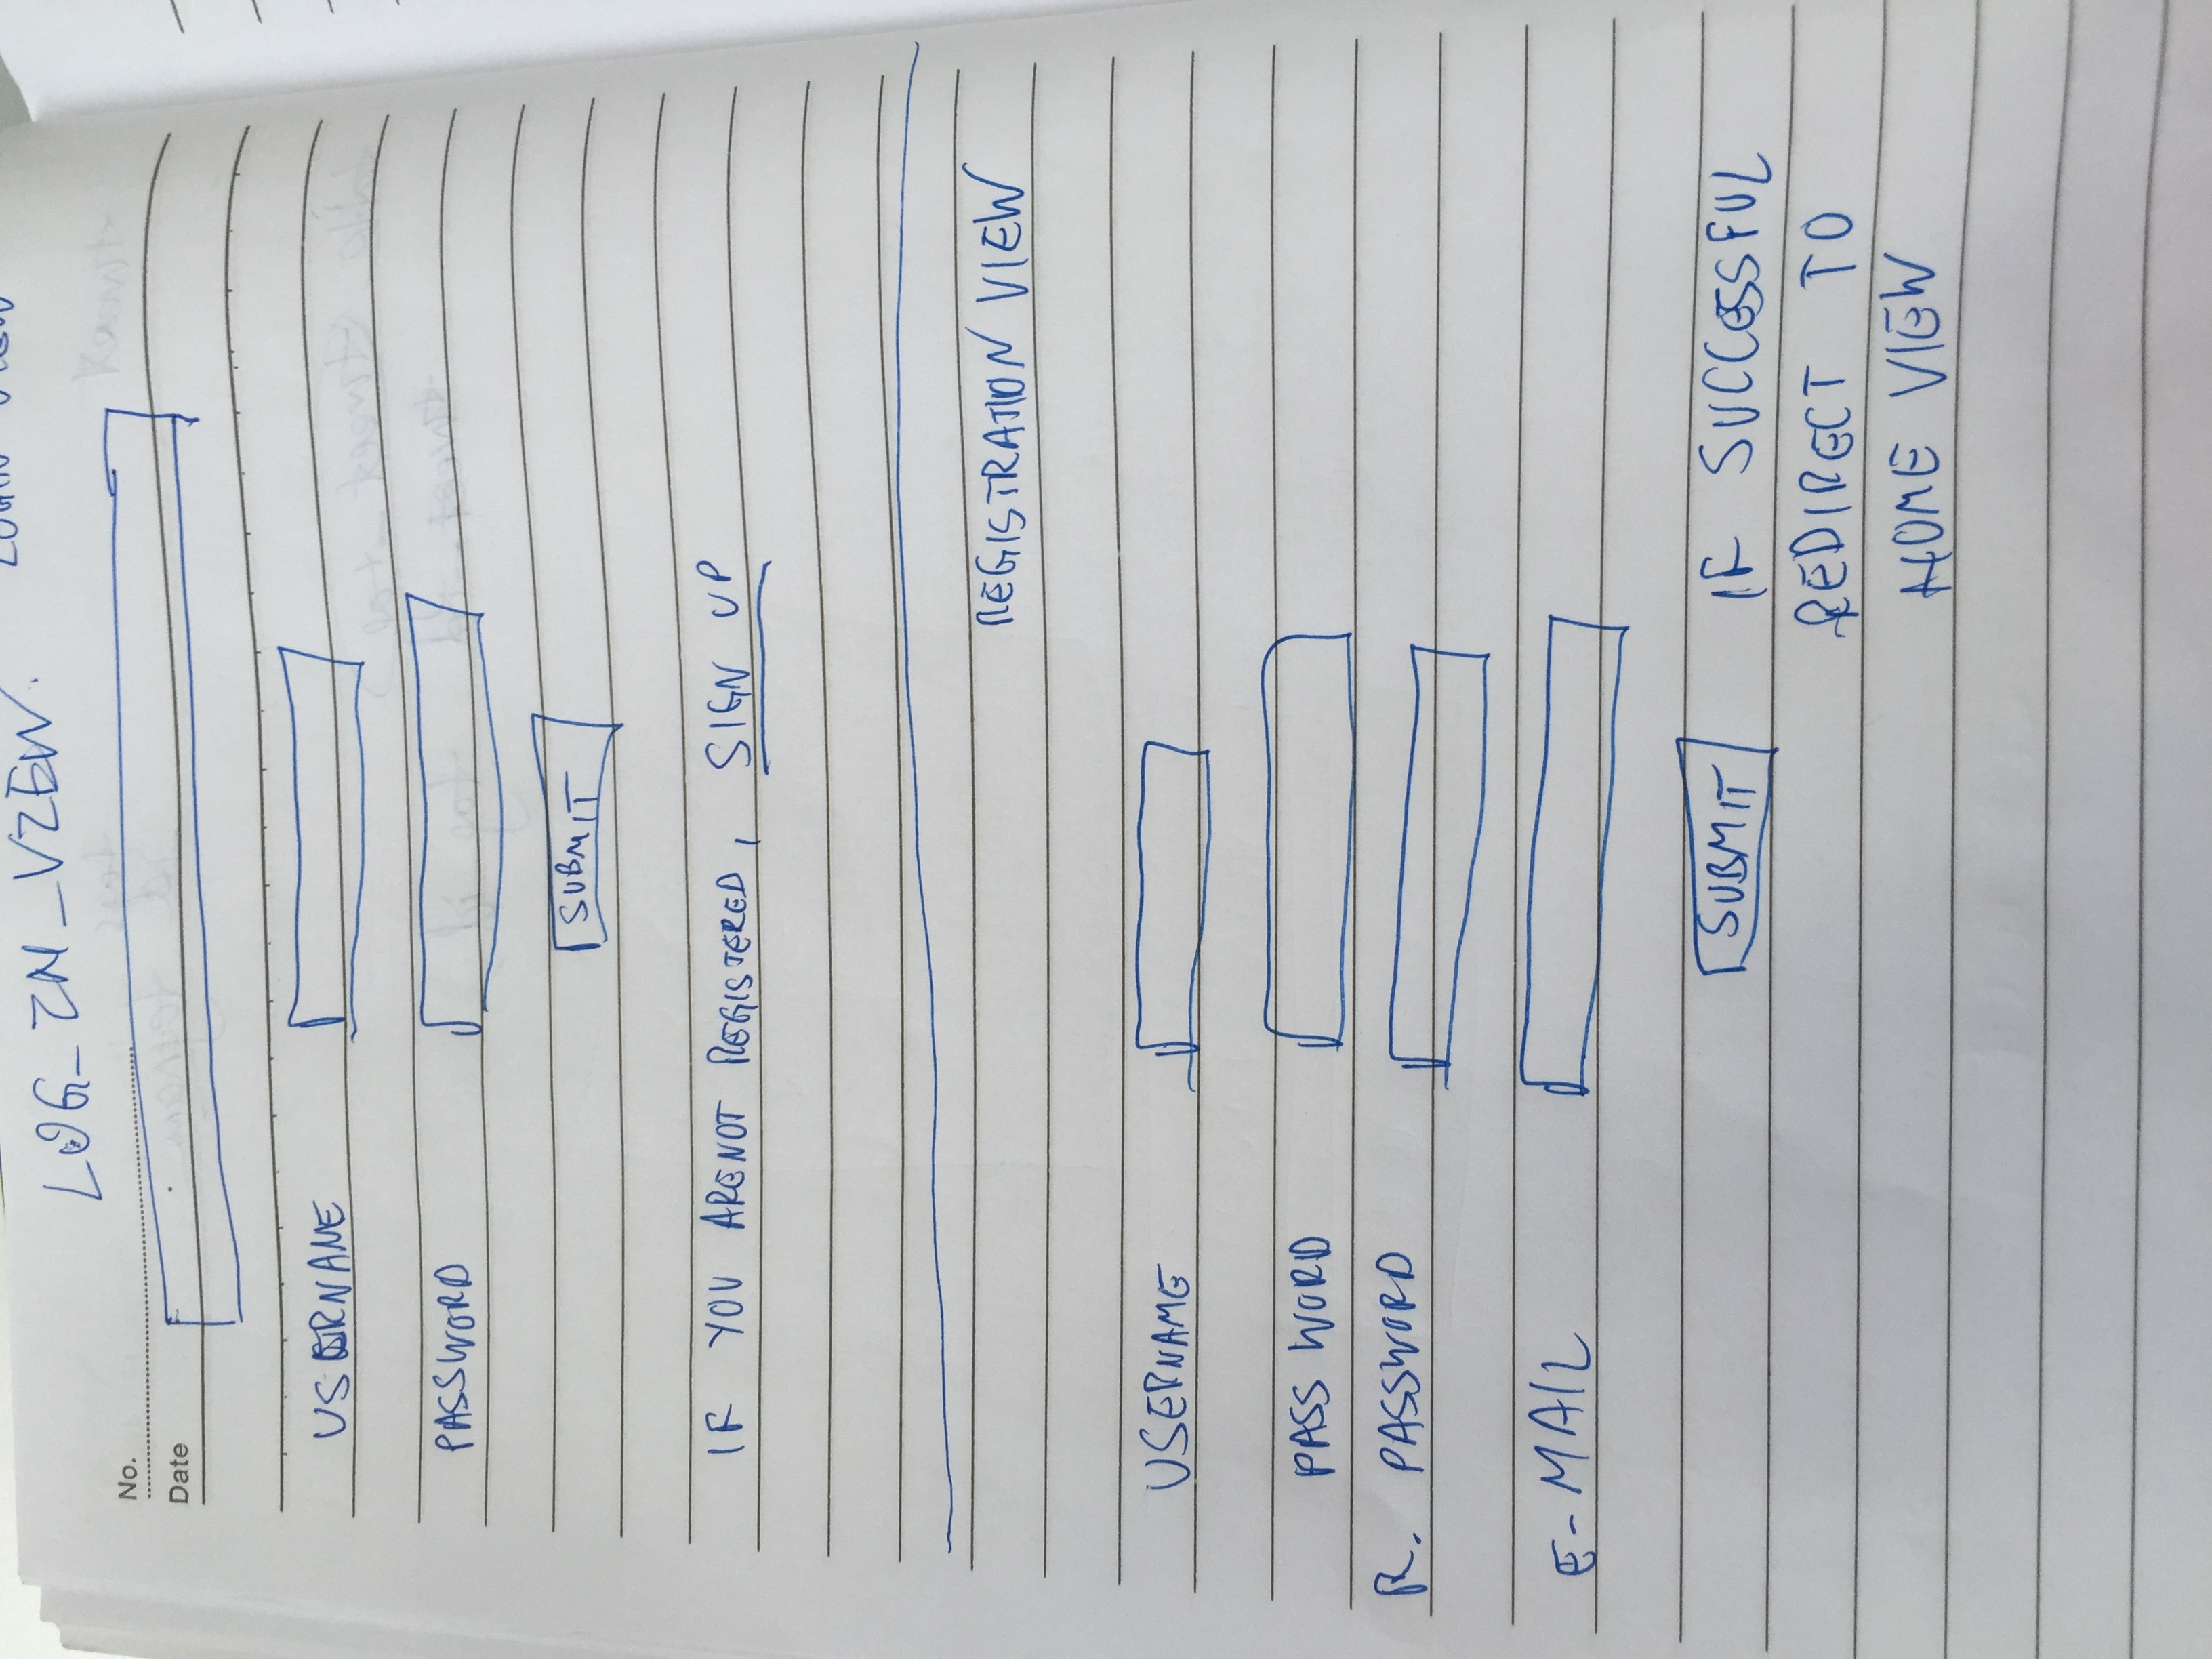 LOGIN VIEW
LOG_IN_VIEW.
No.
Date
USERNAME
PASSWORD
SUBMIT
IF YOU ARE NOT REGISTERED, SIGN UP
REGISTRATION VIEW
USERNAME
PASS WORD
R. PASSWORD
E-MAIL
SUBMIT IF SUCCESSFUL
REDIRECT TO
HOME VIEW